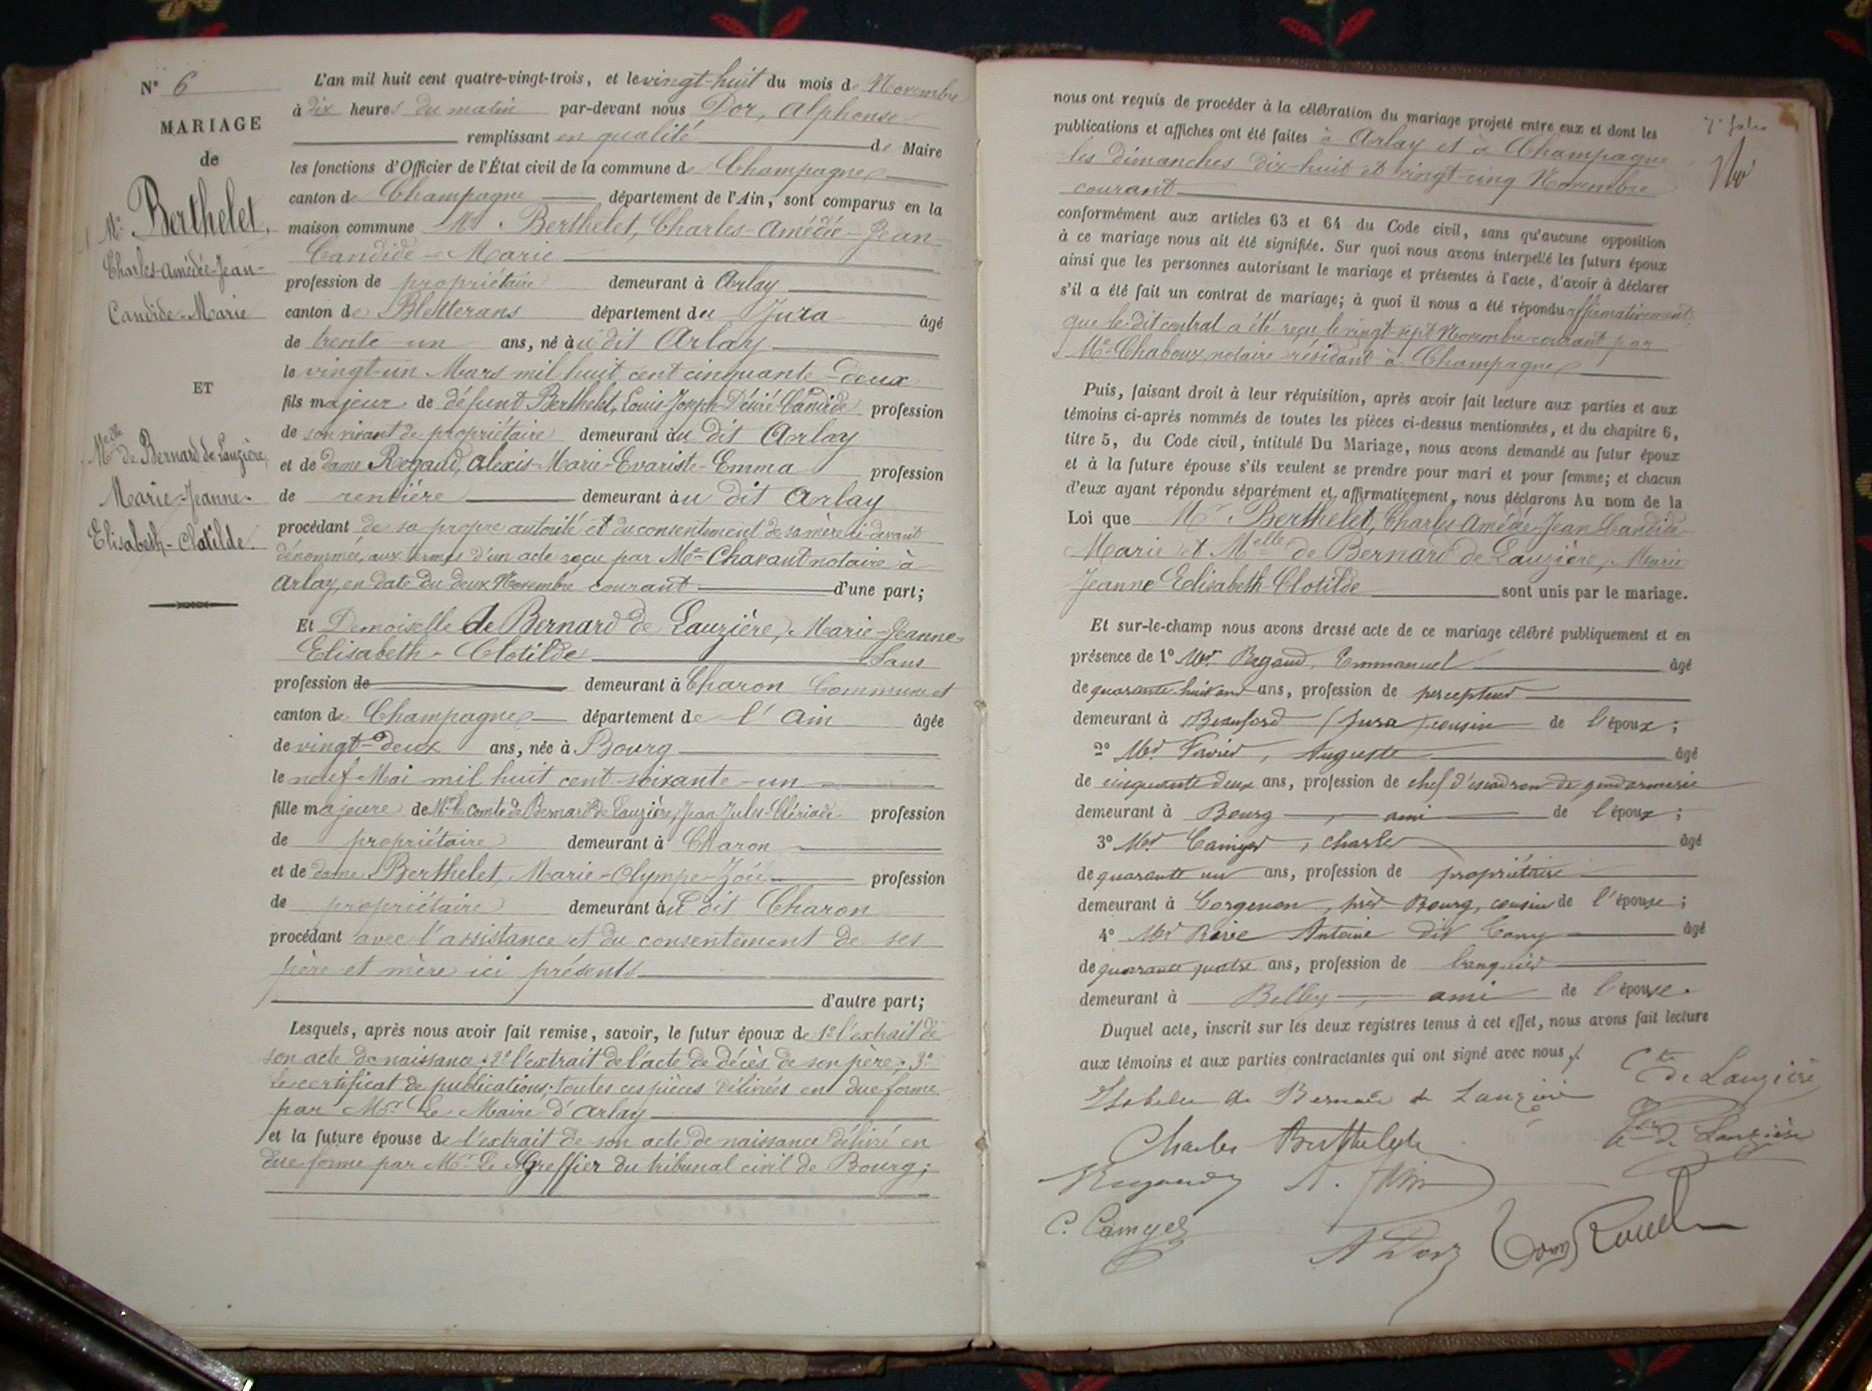 N° 6
MARIAGE
de
Mr Berthelet,
Charles-Amédée-Jean-
Candide-Marie
ET
Melle de Bernard de Lauzière,
Marie-Jeanne-
Elisabeth-Clotilde.
L'an mil huit cent quatre-vingt-trois, et le vingt-huit du mois de Novembre
à dix heures du matin par-devant nous Dor, Alphonse
remplissant en qualité de Maire
les fonctions d'Officier de l'État civil de la commune de Champagne
canton de Champagne département de l'Ain, sont comparus en la
maison commune Mr. Berthelet, Charles-Amédée-Jean-
Candide-Marie
profession de propriétaire demeurant à Arlay
canton de Bletterans département du Jura âgé
de trente-un ans, né audit Arlay
le vingt-un Mars mil huit cent cinquante-deux
fils majeur de défunt Berthelet, Louis-Joseph-Désiré-Candide profession
de son vivant de propriétaire demeurant au dit Arlay
et de dame Regaud, Alexis-Marie-Evariste-Emma profession
de rentière demeurant au dit Arlay
procédant de sa propre autorité et du consentement de sa mère ci-devant
dénommée, aux termes d'un acte reçu par Me Chavant notaire à
Arlay, en date du deux Novembre courant d'une part;
Et Demoiselle de Bernard de Lauzière, Marie-Jeanne-
Elisabeth-Clotilde Sans
profession de demeurant à Charon Commune et
canton de Champagne département de l'Ain âgée
de vingt-deux ans, née à Bourg
le neuf Mai mil huit cent soixante-un
fille majeure de Mr le Comte de Bernard de Lauzière, Jean-Jules-Clériade profession
de propriétaire demeurant à Charon
et de dame Berthelet, Marie-Olympe-Zoé profession
de propriétaire demeurant au dit Charon
procédant avec l'assistance et du consentement de ses
père et mère ici présents
d'autre part;
Lesquels, après nous avoir fait remise, savoir, le futur époux de 1° l'extrait de
son acte de naissance; 2° l'extrait de l'acte de décès de son père; 3°
le certificat de publications; toutes ces pièces délivrées en due forme
par Mr Le Maire d'Arlay
et la future épouse de l'extrait de son acte de naissance délivré en
due forme par Mr Le Greffier du tribunal civil de Bourg;
nous ont requis de procéder à la célébration du mariage projeté entre eux et dont les
publications et affiches ont été faites à Arlay et à Champagne
les dimanches dix-huit et vingt-cinq Novembre
courant
conformément aux articles 63 et 64 du Code civil, sans qu'aucune opposition
à ce mariage nous ait été signifiée. Sur quoi nous avons interpellé les futurs époux
ainsi que les personnes autorisant le mariage et présentes à l'acte, d'avoir à déclarer
s'il a été fait un contrat de mariage; à quoi il nous a été répondu affirmativement
que le dit contrat a été reçu le vingt-sept Novembre courant par
Me Chaboux notaire résidant à Champagne
Puis, faisant droit à leur réquisition, après avoir fait lecture aux parties et aux
témoins ci-après nommés de toutes les pièces ci-dessus mentionnées, et du chapitre 6,
titre 5, du Code civil, intitulé Du Mariage, nous avons demandé au futur époux
et à la future épouse s'ils veulent se prendre pour mari et pour femme; et chacun
d'eux ayant répondu séparément et affirmativement, nous déclarons Au nom de la
Loi que Mr. Berthelet, Charles-Amédée-Jean-Candide-
Marie et Melle de Bernard de Lauzière, Marie
Jeanne-Elisabeth-Clotilde sont unis par le mariage.
Et sur-le-champ nous avons dressé acte de ce mariage célébré publiquement et en
présence de 1° Mr Regaud, Emmanuel âgé
de quarante huit ans ans, profession de percepteur
demeurant à Beaufort (Jura) cousin de l'époux;
2° Mr Février, Auguste âgé
de cinquante deux ans, profession de chef d'escadron de gendarmerie
demeurant à Bourg, ami de l'époux;
3° Mr Camyer, Charles âgé
de quarante un ans, profession de propriétaire
demeurant à Corgenon, près Bourg, cousin de l'épouse;
4° Mr Antoine dit Tony âgé
de quarante quatre ans, profession de banquier
demeurant à Belley, ami de l'épouse.
Duquel acte, inscrit sur les deux registres tenus à cet effet, nous avons fait lecture
aux témoins et aux parties contractantes qui ont signé avec nous.
Cte de Lauzière
de Bernard de Lauzière
Charles Berthelet
de Lauzière
Regaud
C. Camyer
A Dor